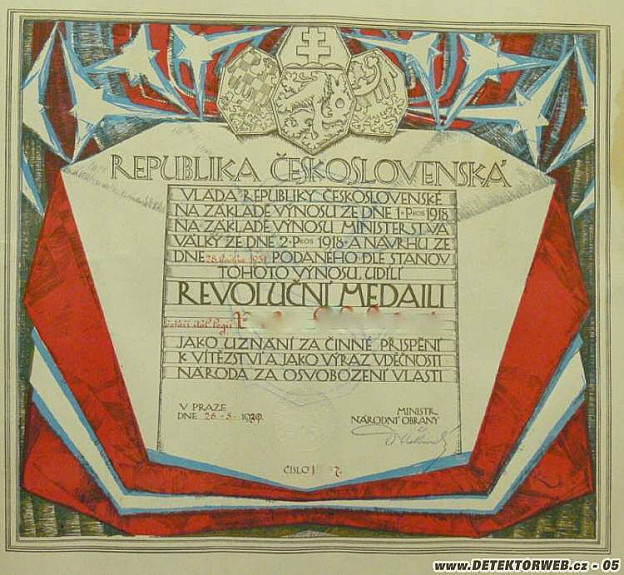 REPUBLIKA ČESKOSLOVENSKÁ
VLÁDA REPUBLIKY ČESKOSLOVENSKÉ
NA ZÁKLADĚ VÝNOSU ZE DNE 1·PROS 1918
NA ZÁKLADĚ VÝNOSU MINISTERSTVA
VÁLKY ZE DNE 2·PROS 1918 A NÁVRHU ZE
DNE 28. PODANÉHO DLE STANOV
TOHOTO VÝNOSU, UDÍLÍ
REVOLUČNÍ MEDAILI
JAKO UZNÁNÍ ZA ČINNÉ PŘISPĚNÍ
K VÍTĚZSTVÍ A JAKO VÝRAZ VDĚČNOSTI
NÁRODA ZA OSVOBOZENÍ VLASTI
V PRAZE
DNE 28·-5·-19
MINISTR
NÁRODNÍ OBRANY
ČÍSLO
www.DETEKTORWEB.cz - 05